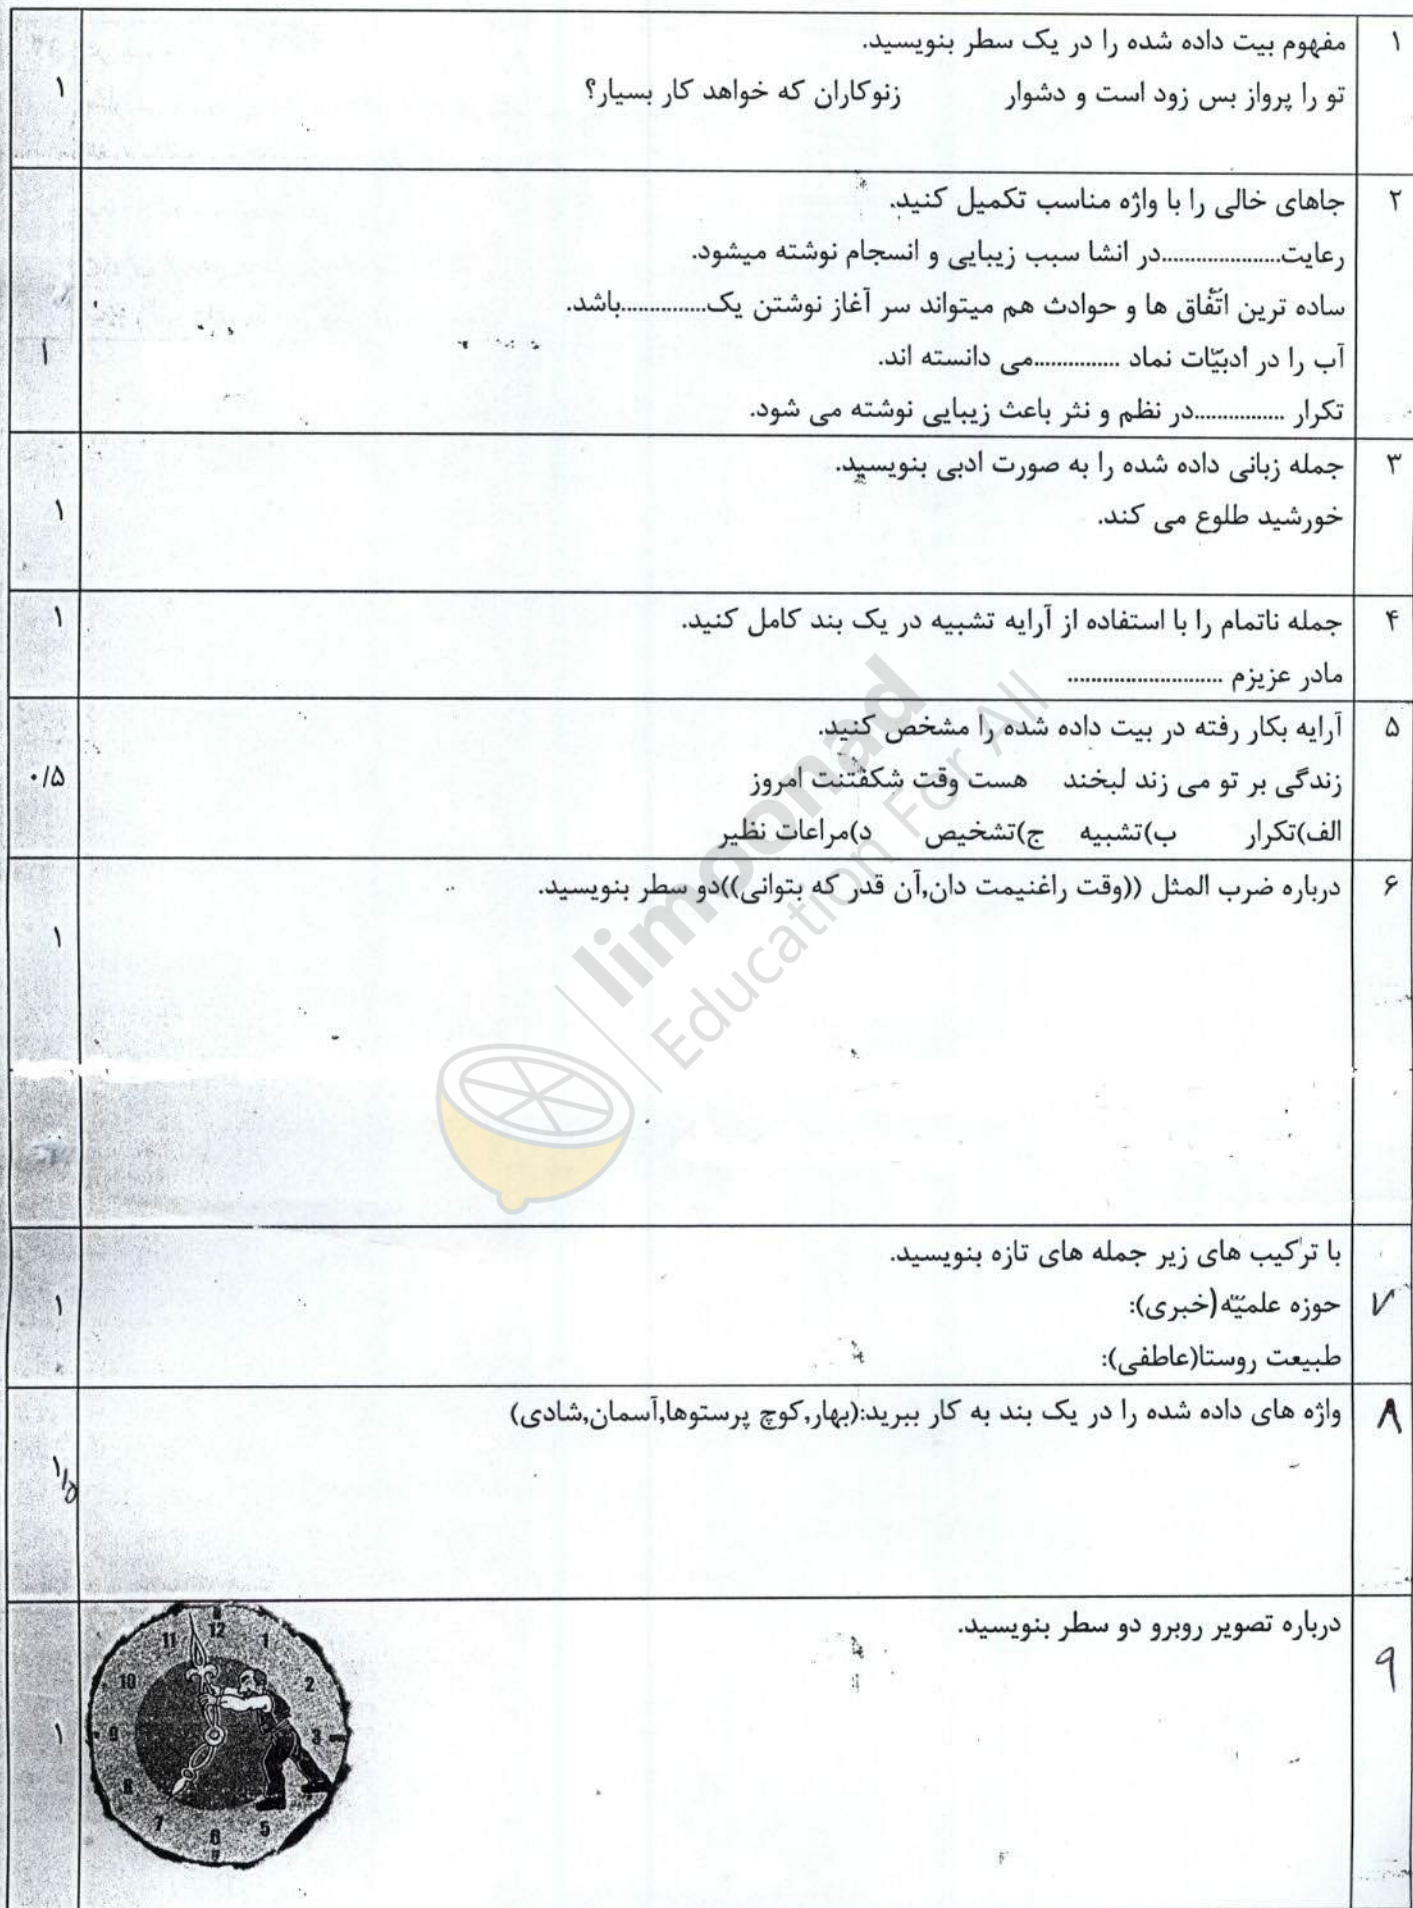 ۱
مفهوم بیت داده شده را در یک سطر بنویسید.
تو را پرواز بس زود است و دشوار زنوکاران که خواهد کار بسیار؟
۱
۲
جاهای خالی را با واژه مناسب تکمیل کنید.
رعایت.....................در انشا سبب زیبایی و انسجام نوشته میشود.
ساده ترین اتّفاق ها و حوادث هم میتواند سر آغاز نوشتن یک...............باشد.
آب را در ادبیّات نماد ...............می دانسته اند.
تکرار ................در نظم و نثر باعث زیبایی نوشته می شود.
۱
۳
جمله زبانی داده شده را به صورت ادبی بنویسید.
خورشید طلوع می کند.
۱
۴
جمله ناتمام را با استفاده از آرایه تشبیه در یک بند کامل کنید.
مادر عزیزم ...........................
۱
۵
آرایه بکار رفته در بیت داده شده را مشخص کنید.
زندگی بر تو می زند لبخند هست وقت شکفتنت امروز
الف)تکرار ب)تشبیه ج)تشخیص د)مراعات نظیر
۰/۵
۶
درباره ضرب المثل ((وقت راغنیمت دان,آن قدر که بتوانی))دو سطر بنویسید.
۱
۷
با ترکیب های زیر جمله های تازه بنویسید.
حوزه علمیّه(خبری):
طبیعت روستا(عاطفی):
۱
۸
واژه های داده شده را در یک بند به کار ببرید:(بهار,کوچ پرستوها,آسمان,شادی)
۱/۵
۹
درباره تصویر روبرو دو سطر بنویسید.
۱
12
1
2
3
5
6
7
8
9
10
11
limoonad
Education For All